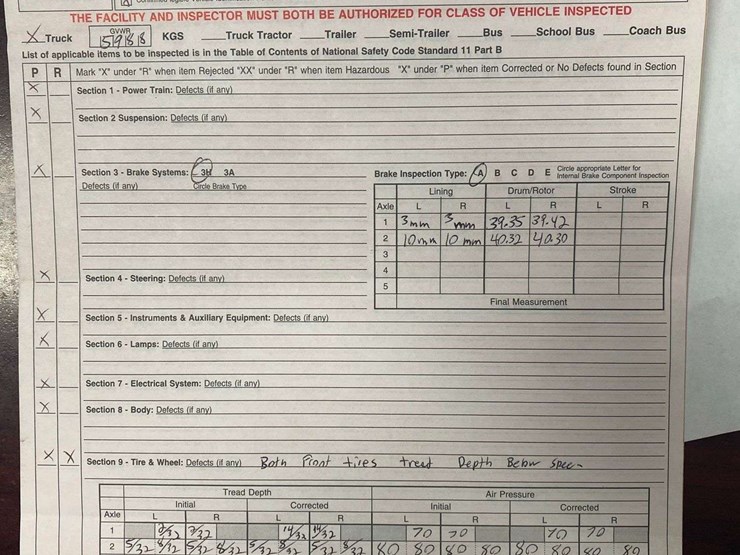 THE FACILITY AND INSPECTOR MUST BOTH BE AUTHORIZED FOR CLASS OF VEHICLE INSPECTED
X Truck GVWR KGS Truck Tractor Trailer Semi-Trailer Bus School Bus Coach Bus
List of applicable items to be inspected is in the Table of Contents of National Safety Code Standard 11 Part B
P R Mark "X" under "R" when item Rejected "XX" under "R" when item Hazardous "X" under "P" when item Corrected or No Defects found in Section
X Section 1 - Power Train: Defects (if any)
X Section 2 Suspension: Defects (if any)
X Section 3 - Brake Systems: 3H 3A
Defects (if any) Circle Brake Type
Brake Inspection Type: A B C D E Circle appropriate Letter for Internal Brake Component Inspection
Lining Drum/Rotor Stroke
Axle L R L R L R
1 3mm 3mm 39.35 39.42
2 10mm 10mm 40.32 40.30
3
4
5
Final Measurement
X Section 4 - Steering: Defects (if any)
X Section 5 - Instruments & Auxiliary Equipment: Defects (if any)
X Section 6 - Lamps: Defects (if any)
X Section 7 - Electrical System: Defects (if any)
X Section 8 - Body: Defects (if any)
X X Section 9 - Tire & Wheel: Defects (if any) Both Front tires tread Depth Below Spec-
Tread Depth Air Pressure
Initial Corrected Initial Corrected
Axle L R L R L R L R
1 2/32 2/32 14/32 14/32 70 70 70 70
2 5/32 5/32 8/32 5/32 5/32 80 80 80 80 80 80 80 80